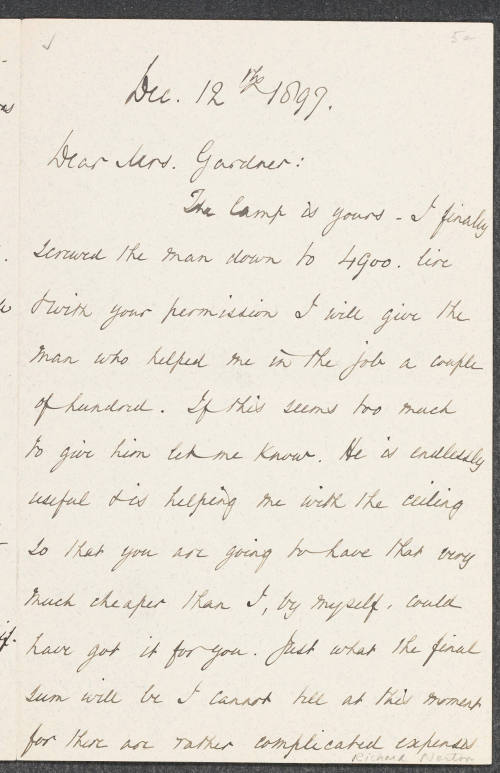 5a
Dec. 12th 1897.
Dear Mrs. Gardner:
The lamp is yours - I finally
screwed the man down to 4900. lire
& with your permission I will give the
man who helped me in the job a couple
of hundred. If this seems too much
to give him let me know. He is endlessly
useful & is helping me with the ceiling
so that you are going to have that very
much cheaper than I, by myself, could
have got it for you. Just what the final
sum will be I cannot tell at this moment
for there are rather complicated expenses
Richard Norton